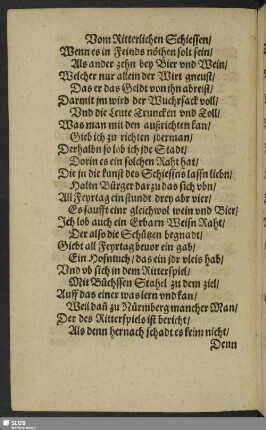 Vom Ritterlichen Schiessen/
Wenn es in Feinds nöthen solt sein/
Als ander zehn bey Bier vnd Wein/
Welcher nur allein der Wirt gneust/
Das er das Geldt von jhn abreist/
Darmit jm wird der Wuchrsack voll/
Vnd die Leute Truncken vnd Toll/
Was man mit den außrichten kan/
Gieb ich zu richten jderman/
Derhalbn so lob ich jde Stadt/
Dorin es ein solchen Raht hat/
Die jn die kunst des Schiessens lassn liebn/
Haltn Bürger dar zu das sich vbn/
All Feyrtag ein stundt drey abr vier/
Es saufft einr gleichwol wein vnd Bier/
Ich lob auch ein Erbarn Weisn Raht/
Der also die Schützen begnadt/
Giebt all Feyrtag beuor ein gab/
Ein Hosntuch/ das ein jdr vleis hab/
Vnd vb sich in dem Ritterspiel/
Mit Büchssen Stahel zu dem ziel/
Auff das einer was lern vnd kan/
Weil dañ zu Nürmberg mancher Man/
Der des Ritterspiels ist bericht/
Als denn hernach schadt es keim nicht/
Denn
SLUB